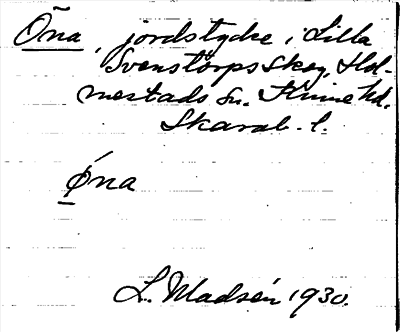 Öna, jordstycke i Lilla
Svenstorps Skog, Hol-
mestads sn. Kinne hd.
Skarab. l.
Ǿna
L. Madsén 1930.